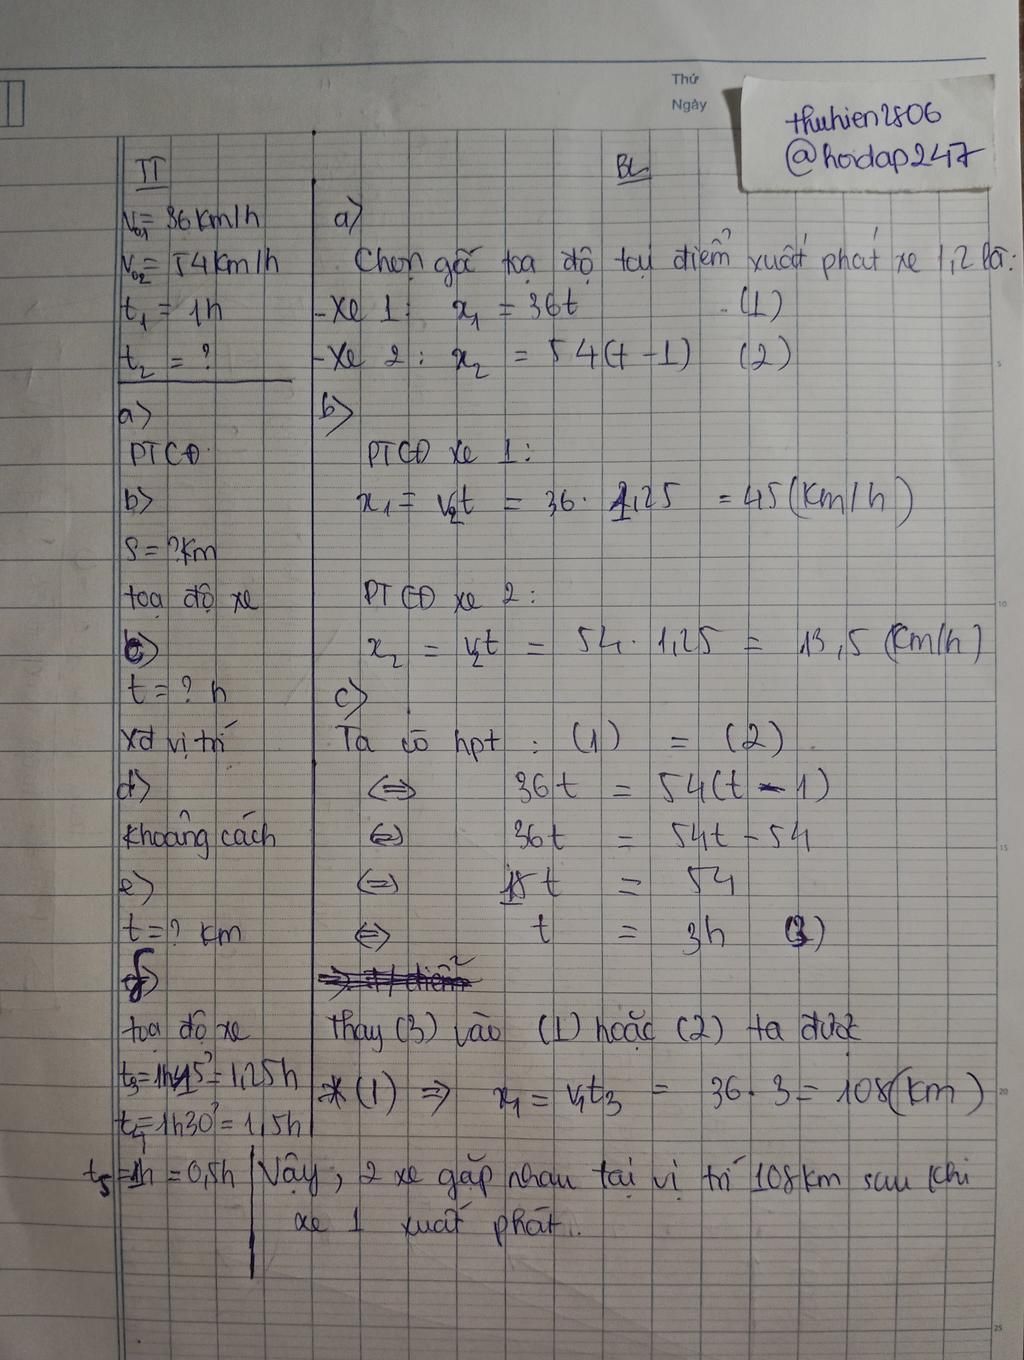 Thứ
Ngày
thuhien2806
@hoidap247
TT
V₀₁= 36 km/h
V₀₂= 54km/h
t₁ = 1h
t₂ = ?
a)
PTCĐ
b)
S = ?km
toạ độ xe
c)
t = ? h
xđ vị trí
d)
Khoảng cách
e)
t = ? km
f)
toạ độ xe
t₃=1h15'=1,25h
t₄=1h30'=1,5h
t₅=1h = 0,5h
BL
a)
Chọn gốc toạ độ tại điểm xuất phát xe 1,2 là:
-Xe 1: x₁ = 36t (1)
-Xe 2 : x₂ = 54(t-1) (2)
b)
PTCĐ xe 1:
x₁ = v₂t = 36 . 1,25 = 45 (km/h)
PTCĐ xe 2:
x₂ = v₂t = 54 . 1,25 = 13,5 (km/h)
c)
Ta có hpt : (1) = (2)
<=> 36t = 54(t-1)
<=> 36t = 54t - 54
<=> 18t = 54
<=> t = 3h (3)
Thay (3) vào (1) hoặc (2) ta được
*(1) => x₁ = v₁t₃ = 36 . 3 = 108(km)
Vậy, 2 xe gặp nhau tại vị trí 108km sau khi
xe 1 xuất phát.
5
10
15
20
25